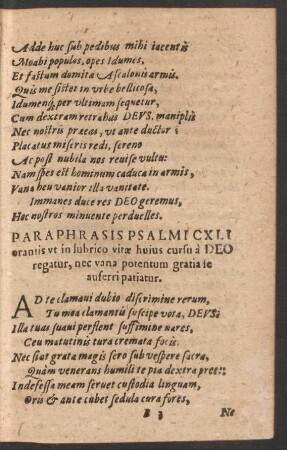 Adde huc sub pedibus mihi iacentis
Moabi populos, opes Idumes,
Et fastum domita Ascalonis armis.
Quis me sistet in vrbe bellicosa,
Idumenq; per vltimam sequetur,
Cum dextram retrahas DEVS, maniplis
Nec nostris praeas, vt ante ductor?
Placatus miseris redi, sereno
Ac post nubila nos reuise vultu:
Nam spes est hominum caduca in armis,
Vana heu vanior illa vanitate.
Immanes duce res DEO geremus,
Hoc nostros minuente perduelles.
PARAPHRASIS PSALMI CXLI
orantis vt in lubrico vitæ huius cursu à DEO
regatur, nec vana potentum gratia se
auferri patiatur.
AD te clamaui dubio discrimine rerum,
Tu mea clamantis suscipe vota, DEVS:
Illa tuas suaui perflent suffimine nares,
Ceu matutinis tura cremata focis.
Nec sint grata magis sero sub vespere sacra,
Quàm venerans humili te pia dextra prece:
Indefessa meam seruet custodia linguam,
Oris & ante cubet sedula cura fores,
B 3
Ne